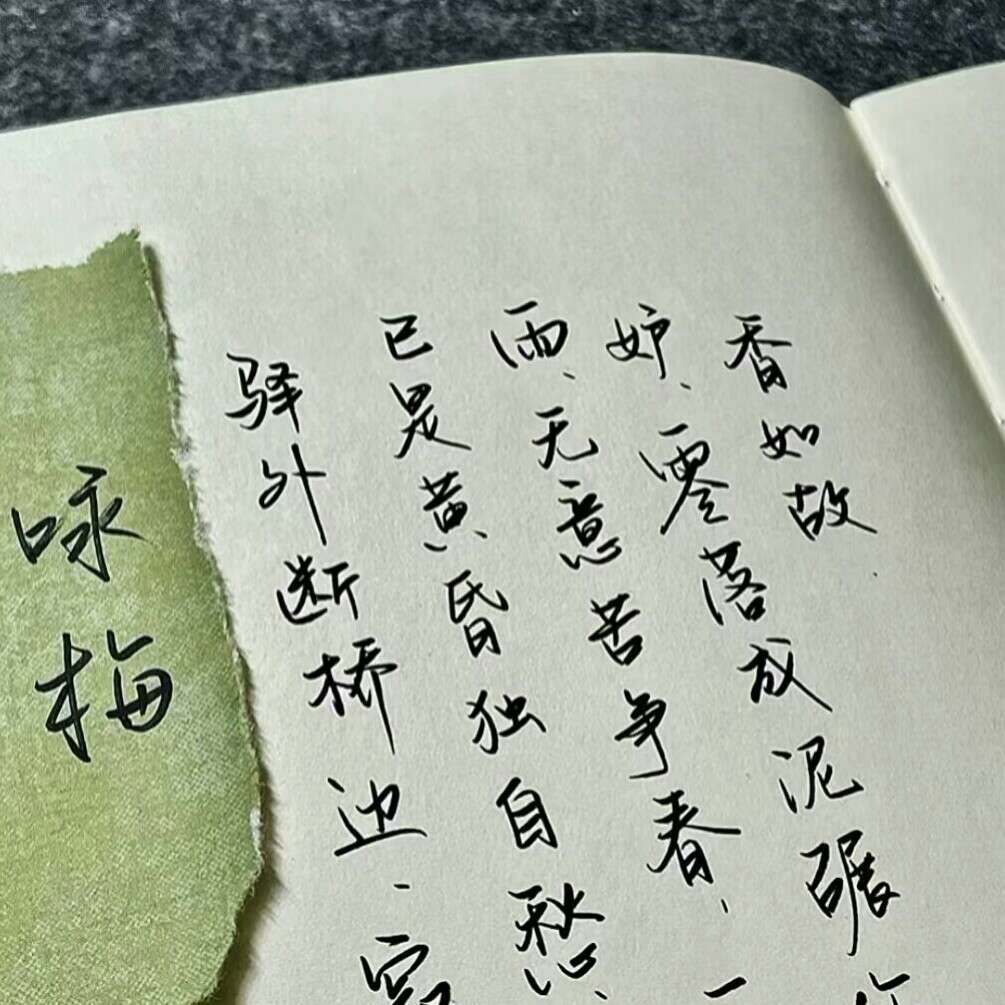 咏梅
驿外断桥边、寂
已是黄昏独自愁、
雨、无意苦争春、一
妒、零落成泥碾作
香如故.